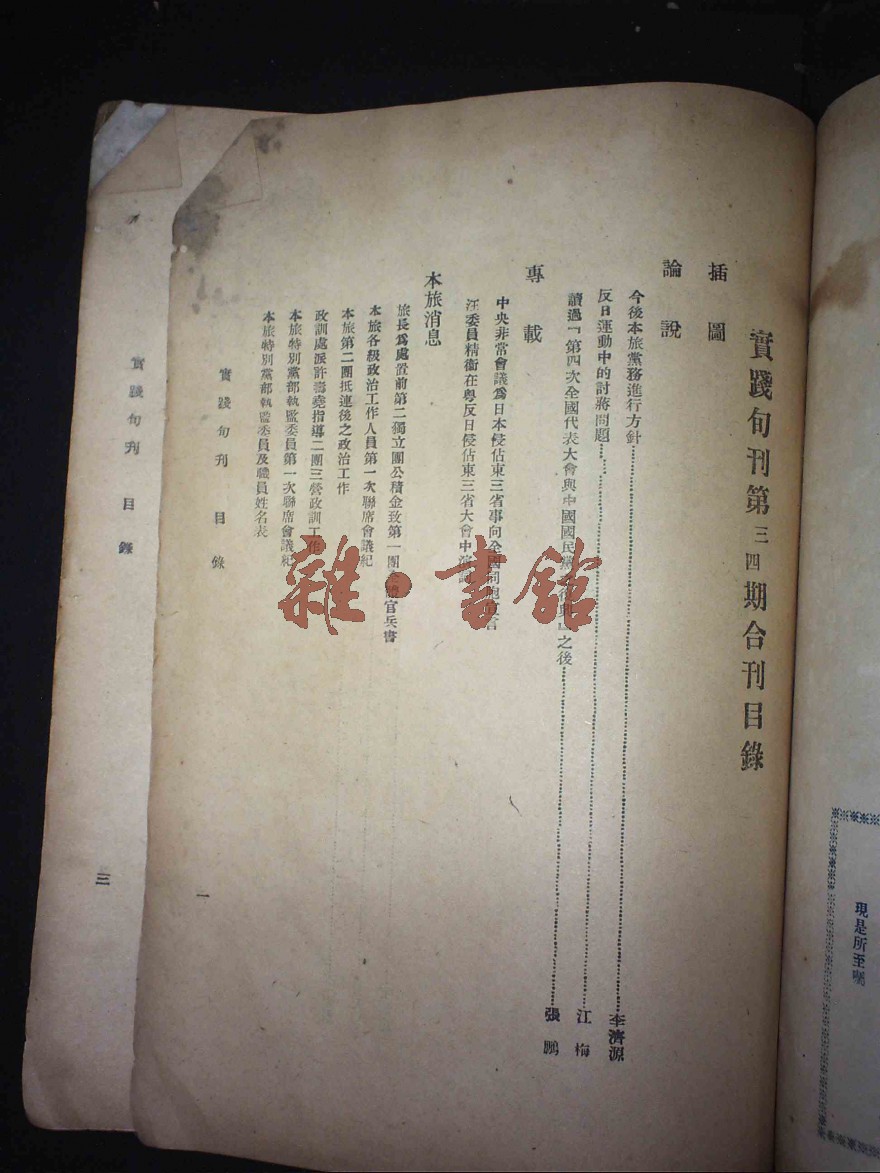 實踐旬刊第三四期合刊目錄
插圖
論說
今後本旅黨務進行方針 李濟源
反日運動中的討蔣問題 江梅
讀過「第四次全國代表大會與中國國民黨之後 張鵬
專載
中央非常會議爲日本侵佔東三省事向全國同胞宣言
汪委員精衛在粵反日侵佔東三省大會中演詞
本旅消息
旅長爲處置前第二獨立團公積金致第一團官兵書
本旅各級政治工作人員第一次聯席會議紀
本旅第二團抵連後之政治工作
政訓處派許壽堯指導二團三營政訓工作
本旅特別黨部執監委員第一次聯席會議紀
本旅特別黨部執監委員及職員姓名表
實踐旬刊 目錄 一
實踐旬刊 目錄 三
現是所至囑
雜·書館